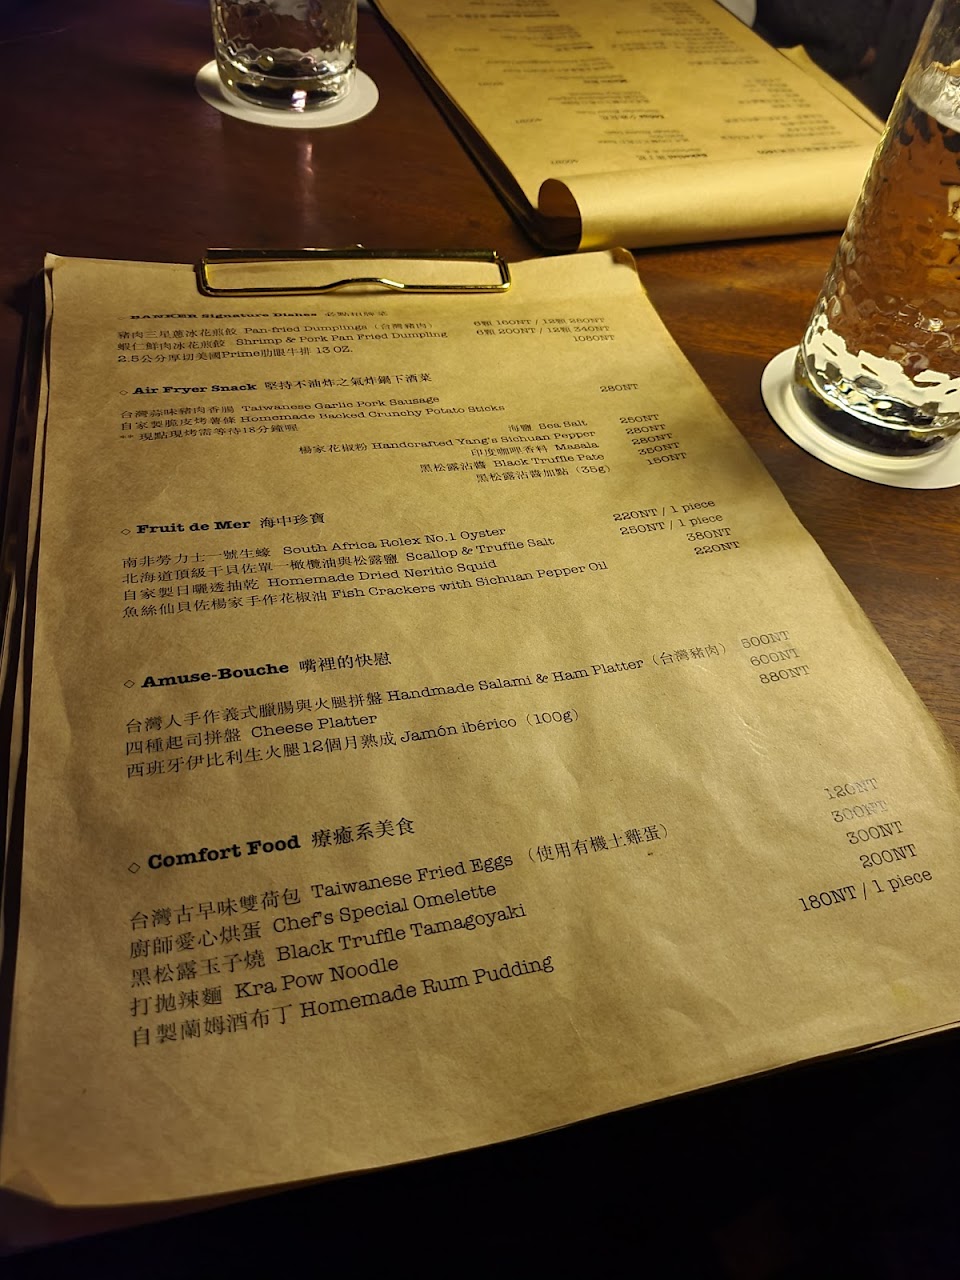 BANKER Signature Dishes 必點招牌菜
豬肉三星蔥冰花煎餃 Pan-fried Dumplings（台灣豬肉） 6顆 160NT / 12顆 280NT
蝦仁鮮肉冰花煎餃 Shrimp & Pork Pan Fried Dumpling 6顆 200NT / 12顆 340NT
2.5公分厚切美國Prime肋眼牛排 13 OZ. 1080NT
◇ Air Fryer Snack 堅持不油炸之氣炸鍋下酒菜
台灣蒜味豬肉香腸 Taiwanese Garlic Pork Sausage 280NT
自家製脆皮烤薯條 Homemade Backed Crunchy Potato Sticks
** 現點現烤需等待18分鐘喔
海鹽 Sea Salt 250NT
楊家花椒粉 Handcrafted Yang's Sichuan Pepper 280NT
印度咖哩香料 Masala 280NT
黑松露沾醬 Black Truffle Pate 350NT
黑松露沾醬加點（35g） 150NT
◇ Fruit de Mer 海中珍寶
南非勞力士一號生蠔 South Africa Rolex No.1 Oyster 220NT / 1 piece
北海道頂級干貝佐單一橄欖油與松露鹽 Scallop & Truffle Salt 250NT / 1 piece
自家製日曬透抽乾 Homemade Dried Neritic Squid 380NT
魚絲仙貝佐楊家手作花椒油 Fish Crackers with Sichuan Pepper Oil 220NT
◇ Amuse-Bouche 嘴裡的快慰
台灣人手作義式臘腸與火腿拼盤 Handmade Salami & Ham Platter（台灣豬肉） 500NT
四種起司拼盤 Cheese Platter 600NT
西班牙伊比利生火腿12個月熟成 Jamón ibérico（100g） 880NT
◇ Comfort Food 療癒系美食
台灣古早味雙荷包 Taiwanese Fried Eggs （使用有機土雞蛋） 120NT
廚師愛心烘蛋 Chef's Special Omelette 300NT
黑松露玉子燒 Black Truffle Tamagoyaki 300NT
打拋辣麵 Kra Pow Noodle 200NT
自製蘭姆酒布丁 Homemade Rum Pudding 180NT / 1 piece